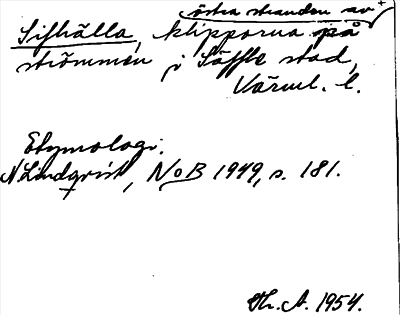 östra stranden av +
Sifhälla, klipporna på
strömmen i Säffle stad,
Värml. l.
Etymologi:
N Lindqvist, NoB 1949, s. 181.
Th. A. 1954.